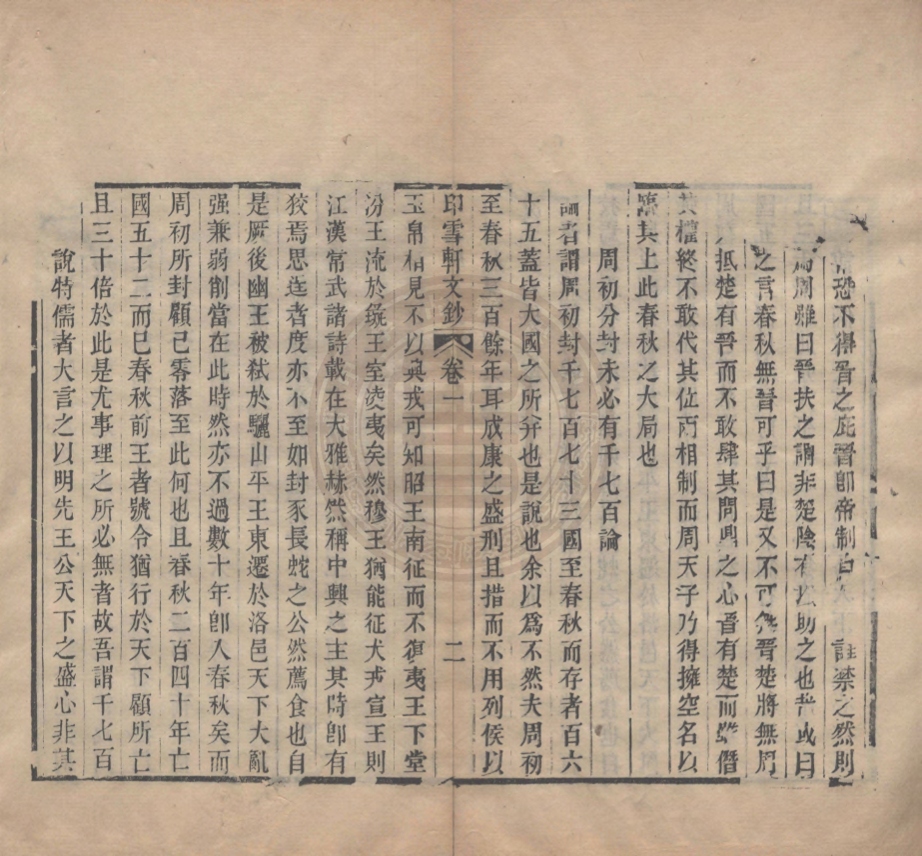 恐不得晉之庇晉卽帝制自 誰禁之然則
周雖曰晉扶之謂非楚陰有以助之也哉或曰
之言春秋無晉可乎曰是又不可無晉楚將無周
抵楚有晉而不敢肆其問鼎之心晉有楚而雖僭
其權終不敢代其位兩相制而周天子乃得擁空名以
臨其上此春秋之大局也
周初分封未必有千七百論
論者謂周初封千七百七十三國至春秋而存者百六
十五蓋皆大國之所幷也是說也余以爲不然夫周初
至春秋三百餘年耳成康之盛刑且措而不用列侯以
印雪軒文鈔 卷一 二
玉帛相見不以兵戎可知昭王南征而不復夷王下堂
汾王流於彘王室淩夷矣然穆王猶能征犬戎宣王則
江漢常武諸詩載在大雅赫然稱中興之主其時卽有
狡焉思逞者度亦不至如封豕長蛇之公然薦食也自
是厥後幽王被弑於驪山平王東遷於洛邑天下大亂
强兼弱削當在此時然亦不過數十年卽入春秋矣而
周初所封顧已零落至此何也且春秋二百四十年亡
國五十二而已春秋前王者號令猶行於天下顧所亡
且三十倍於此是尤事理之所必無者故吾謂千七百
說特儒者大言之以明先王公天下之盛心非其